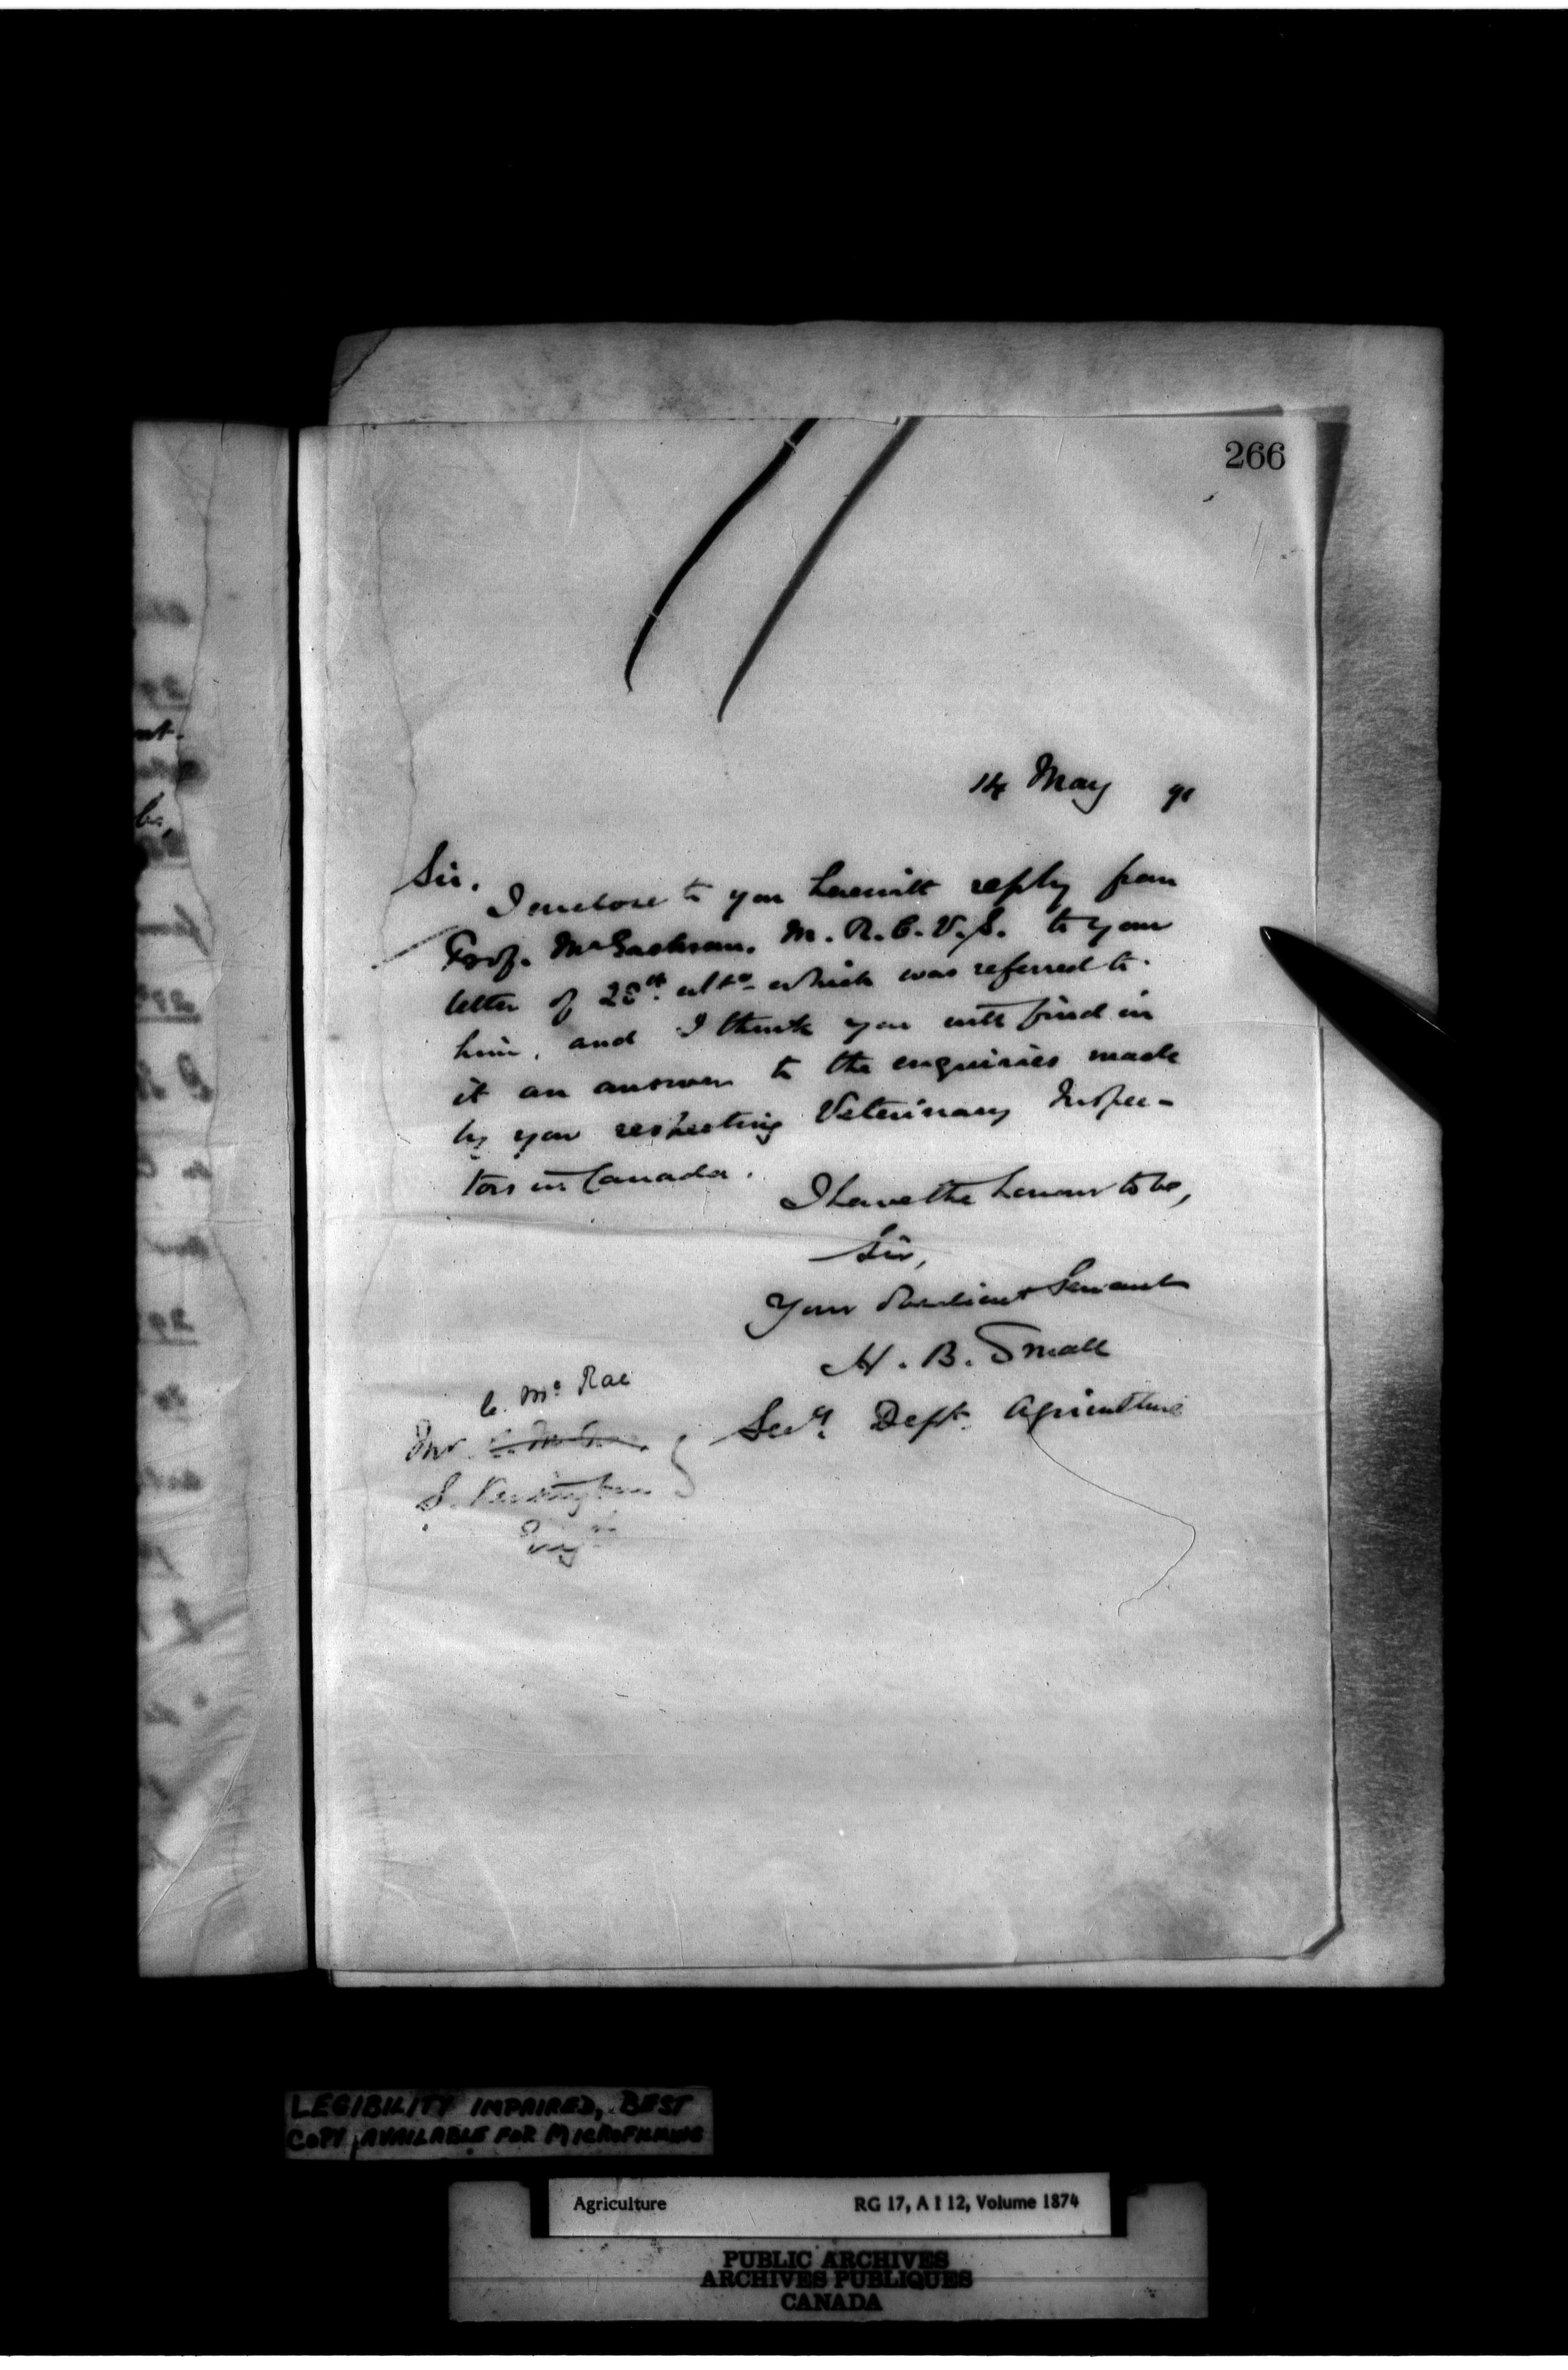 266
14 May 91
Sir.
I enclose to you herewith reply from
Prof. McEachran. M.R.C.V.S. to your
letter of 28th ulto which was referred to
him, and I think you will find in
it an answer to the enquiries made
by you respecting Veterinary Inspec-
tors in Canada.
I have the honour to be,
Sir,
Your obedient Servant
H. B. Small
Secy. Dept. Agriculture
C. Mc Rae
Mr
S. Kensington
LEGIBILITY IMPAIRED, BEST
COPY AVAILABLE FOR MICROFILMING
Agriculture RG 17, A I 12, Volume 1874
PUBLIC ARCHIVES
ARCHIVES PUBLIQUES
CANADA